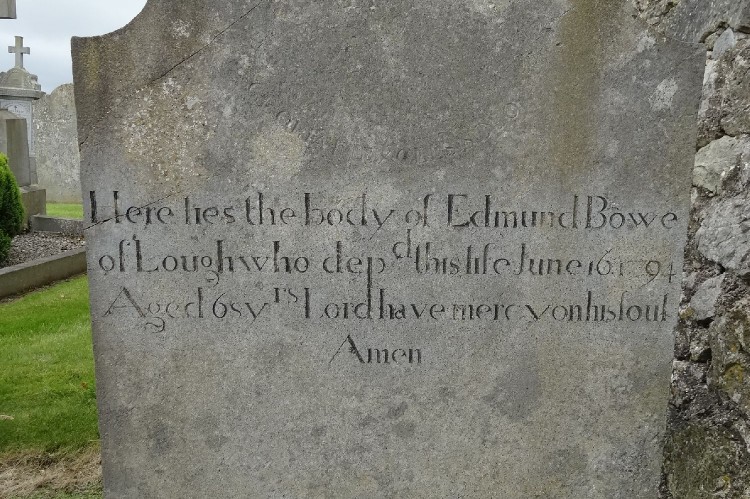 Here lies the body of Edmund Bowe
of Lough who depd this life June 16 1794
Aged 68 yrs Lord have mercy on his soul
Amen